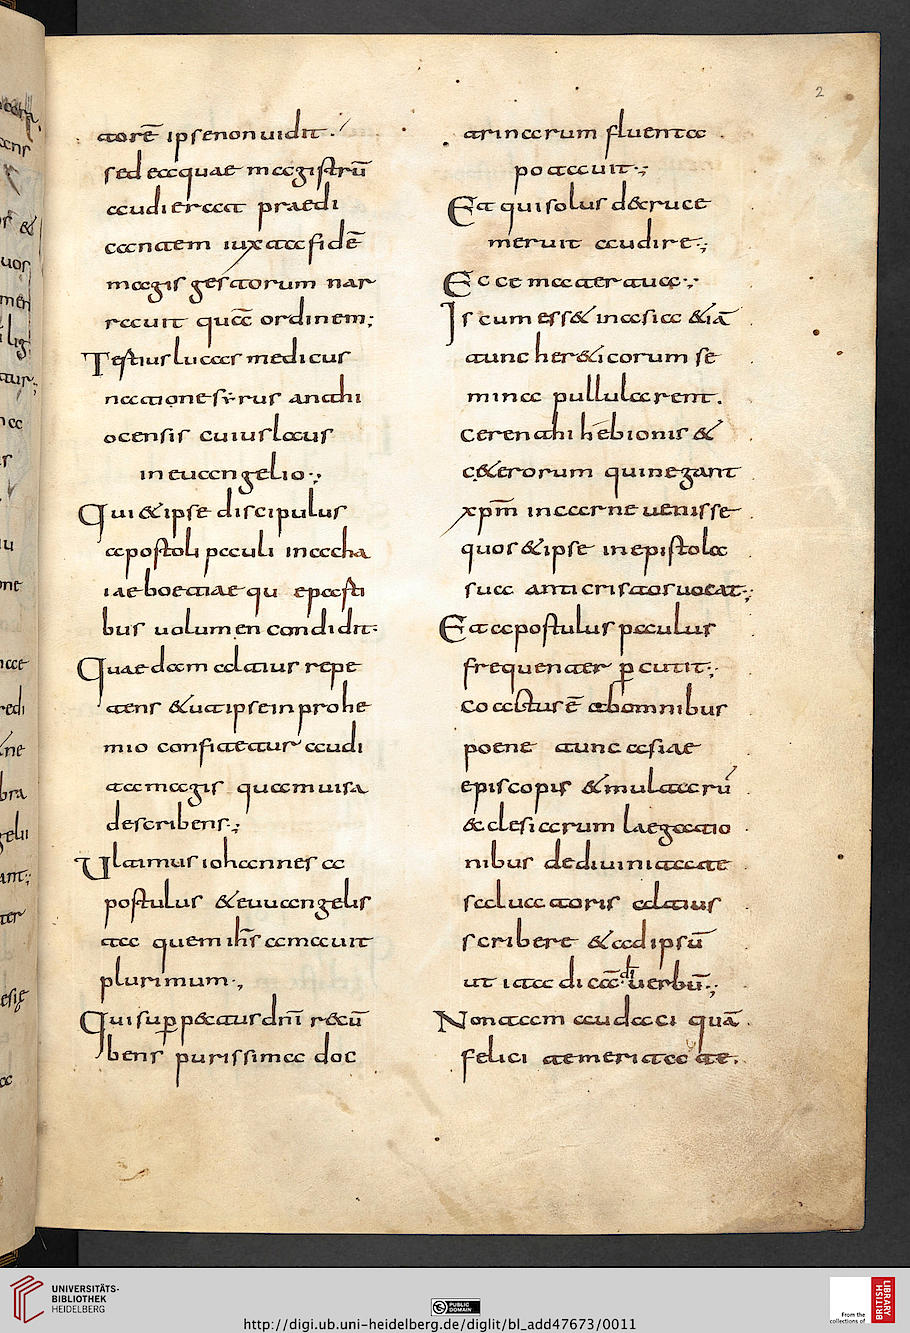 2
torē ipse non uidit.
sed ea quae magistrū
audierat praedi
cantem iuxta fidē
magis gestorum nar
rauit quā ordinem;
Tertius lucas medicus
natione syrus anthi
ocensis cuius laus
in euangelio;
Qui & ipse discipulus
apostoli pauli in acha
iae boetiae qu epasti
bus uolumen condidit.
Quaedam altius repe
tens & ut ipse in prohe
mio confitetur audi
ta magis quam uisa
describens;
Ultimus iohannes a
postulus & euuangelis
ta quem ihs̄ amauit
plurimum;
Qui sup̱ pectus dnī recū
bens purissima doc
trinarum fluenta
potauit;
Et qui solus de cruce
meruit audire;
Ecce mater tua;
Is cum ess& in asia & iā
tunc her&icorum se
mina pullularent.
cerenthi hebionis &
c&erorum qui negant
xpm̄ in carne uenisse
quos & ipse in epistola
sua anticristos uocat;
Et apostulus paulus
frequenter p̱cutit;
coactus ē ab omnibus
poene tunc asiae
episcopis & multarū
&clesiarum laegatio
nibus de diuinitate
saluatoris altius
scribere & ad ipsū
ut ita dicā dī uerbū;
Non tam audaci quā
felici temeritate.
UNIVERSITÄTS-
BIBLIOTHEK
HEIDELBERG
PUBLIC DOMAIN
http://digi.ub.uni-heidelberg.de/diglit/bl_add47673/0011
From the collections of
BRITISH LIBRARY